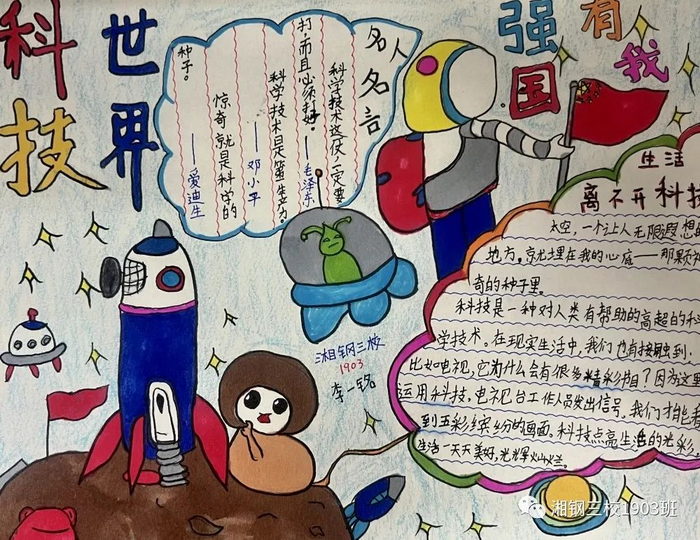 科技
世界
强国
有我
名人名言
科学技术这仗,一定要
打,而且必须打好。
——毛泽东
科学技术是第一生产力。
——邓小平
惊奇就是科学的
种子。
——爱迪生
湘钢三校
1903
李一铭
生活
离不开科技
太空,一个让人无限遐想的
地方。就埋在我的心底——那颗神
奇的种子里。
科技是一种对人类有帮助的高超的科
学技术。在现实生活中,我们也有接触到。
比如电视,它为什么会有很多精彩节目?因为这里
运用科技。电视台工作人员发出信号,我们才能看
到五彩缤纷的画面,科技点亮生活的光彩。
生活一天天美好,光辉灿烂。
湘钢三校1903班